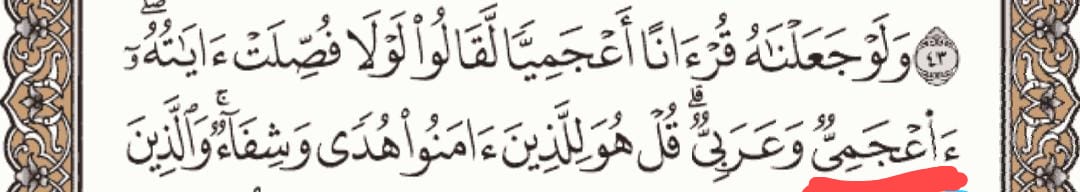 ٤٣ وَلَوْ جَعَلْنَٰهُ قُرْءَانًا أَعْجَمِيًّا لَّقَالُوا۟ لَوْلَا فُصِّلَتْ ءَايَٰتُهُۥٓ ۖ
ءَا۬عْجَمِىٌّ وَعَرَبِىٌّ ۗ قُلْ هُوَ لِلَّذِينَ ءَامَنُوا۟ هُدًى وَشِفَآءٌ ۚ وَٱلَّذِينَ